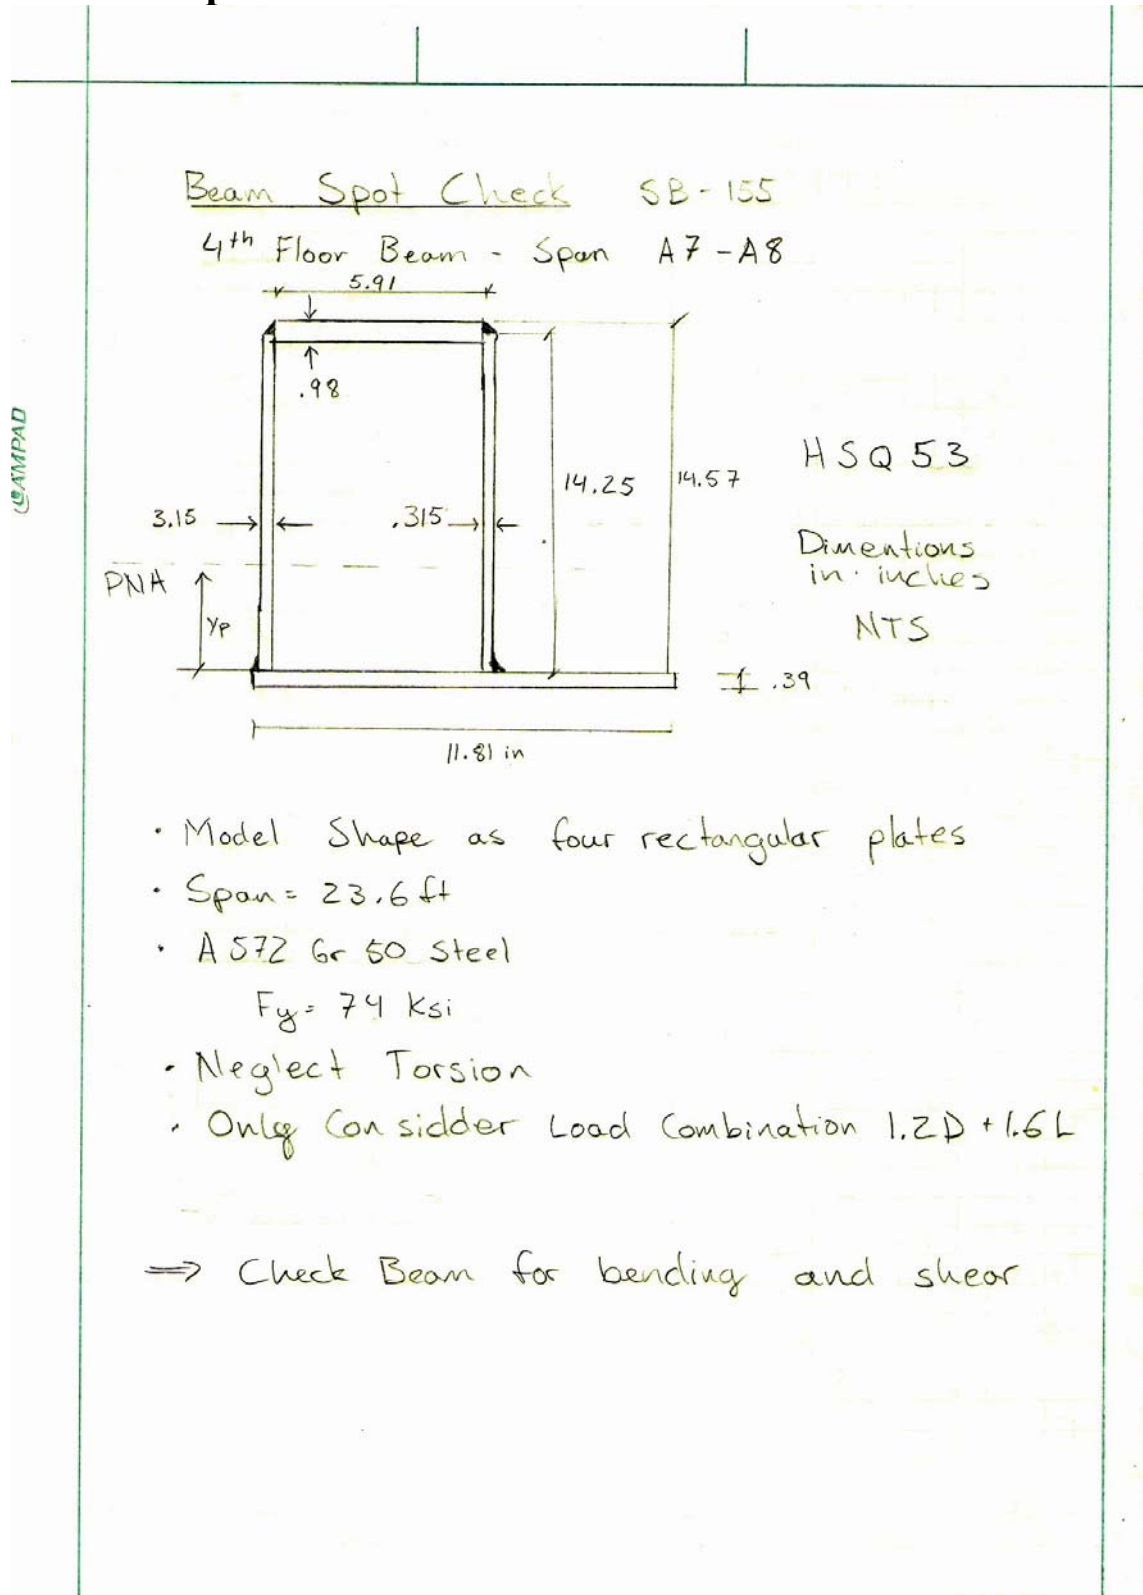 Beam Spot Check SB-155
4th Floor Beam - Span A7-A8
5.91
.98
HSQ 53
14.25
14.57
3.15
.315
Dimentions
in inches
PNA
yp
NTS
.39
11.81 in
• Model Shape as four rectangular plates
• Span = 23.6 ft
• A 572 Gr 50 Steel
Fy = 74 Ksi
• Neglect Torsion
• Only Considder Load Combination 1.2D + 1.6L
⇒ Check Beam for bending and shear
CAMPAD